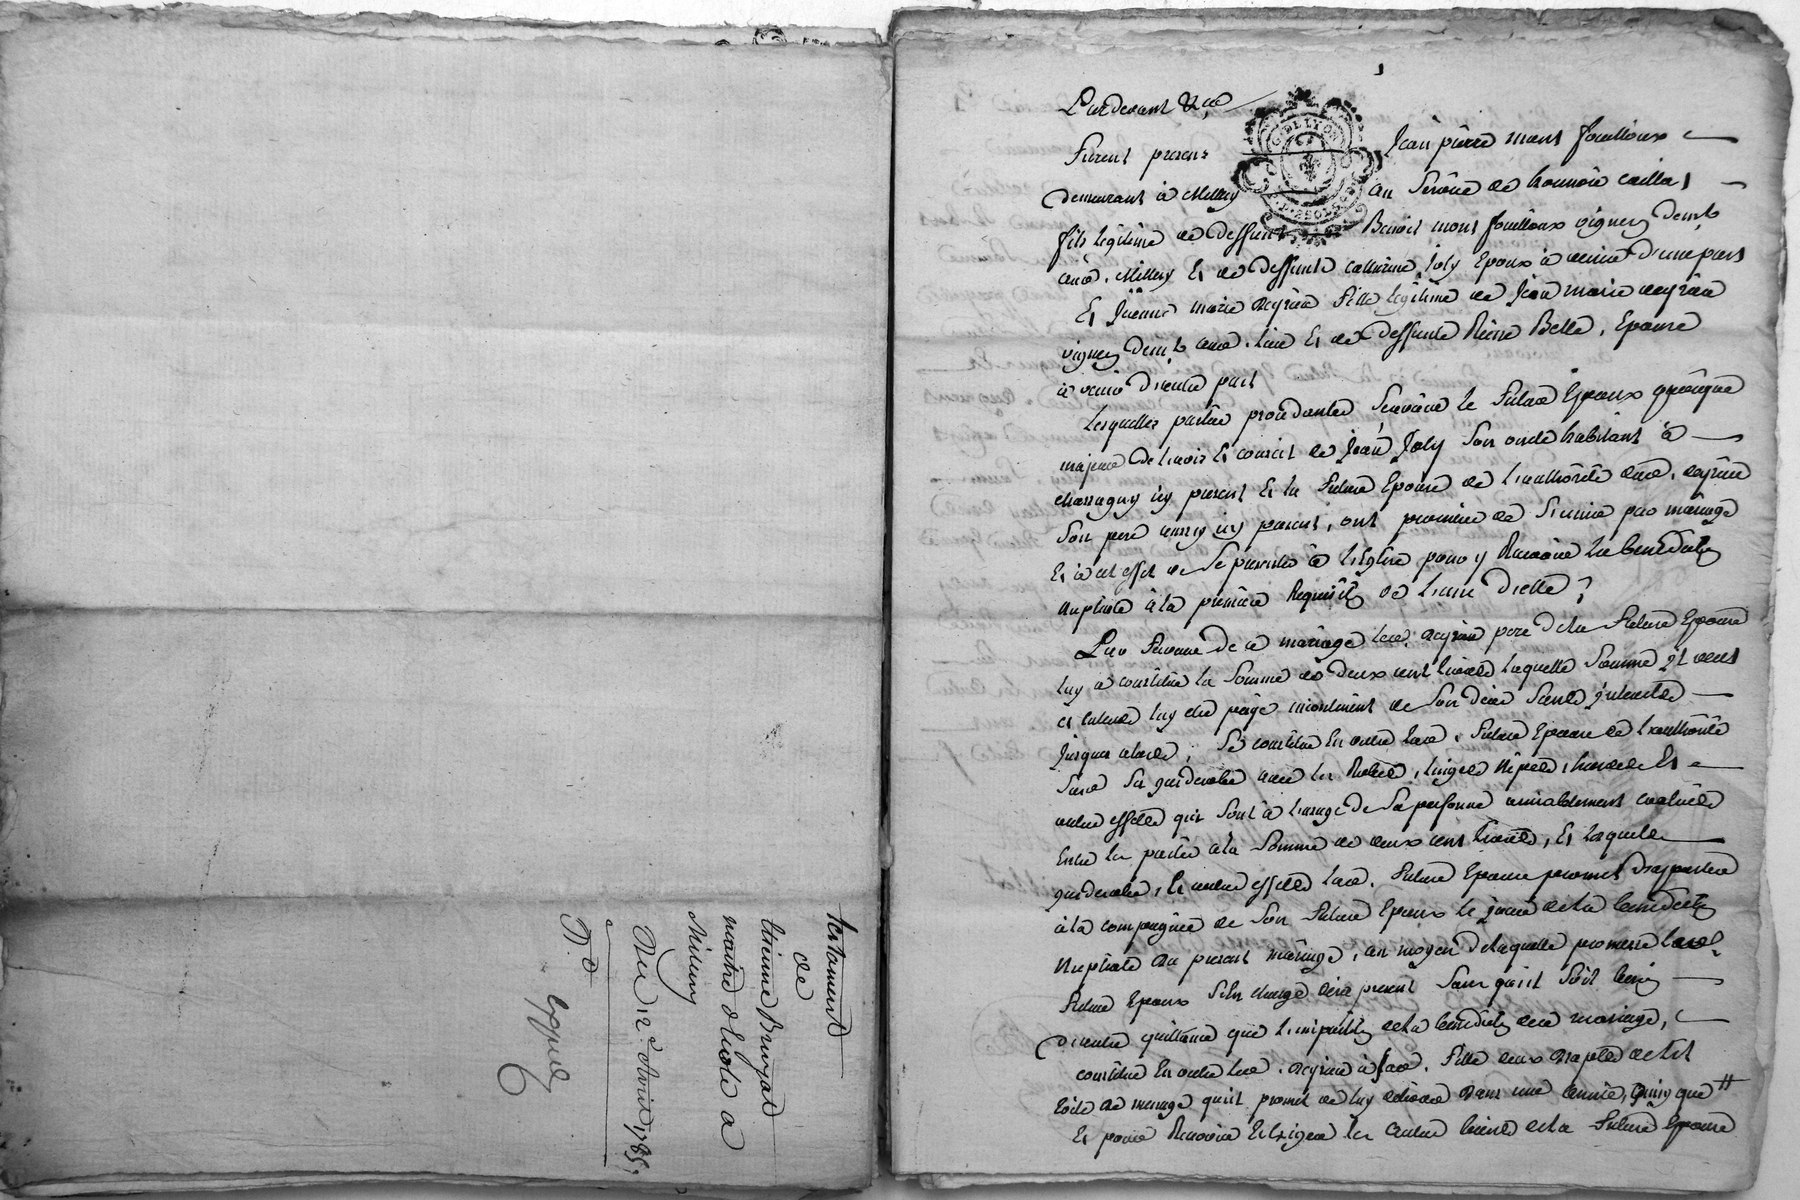 testament
de
Etienne Bruyas
maitre d'ecole a
Millery
Du 12.e Avril 1785
Expué
D. d
Pardevant &ca
G. DE LYON
Furent presens Jean pierre mont fouilloux
demeurant à Millery au service de
fils legitime de deffunt Benoit mont fouilloux vigneron demt
aud. Millery Et de deffunte catherine Joly Epoux à venir d'une part
Et Jeanne marie fille legitime de Jean marie
vigneron demt aud. lieu Et de deffunte Reine Belle, Epouse
à venir d'autre part
Lesquelles parties procedantes Scavoir le futur Epoux quoique
majeur de l'avis Et conseil de Jean Joly Son oncle habitant à
chassagny icy present Et la future Epouse de l'authorité dud.
Son pere aussy icy present, ont promis de S'unir par mariage
Et à cet effet de Se presenter à l'Eglise pour y Recevoir la benediction
nuptiale à la premiere Requisition de l'une d'elle ;
En faveur de ce mariage led. pere de la future Epouse
luy a constitué la Somme de deux cent livres laquelle Somme il veut
et entend luy etre payé au moment de Son décès Sans interets
Jusques alors ; Se constitue En outre lad. future Epouse de l'authorité
Sa garderobe avec les Robes, linges nipes, hardes Et
autres effets qui Sont à l'usage de Sa personne amiablement évalués
Entre les parties à la Somme de deux cens livres, Et laquelle
garderobe, Et autres effets lad. future Epouse promet d'apporter
à la compagnie de Son futur Epoux le jour de la benediction
nuptiale du present mariage, au moyen de laquelle promesse led.
futur Epoux S'en charge dès à present Sans qu'il Soit besoin
d'autre quittance que l'impartition de la benediction dud. mariage,
constitue En outre led. à sad. fille deux draps de lit
toile de menage qu'il promet de luy delivrer dans une année, ainsy que #
Et pour Recevoir Et exiger les autres biens de la future Epouse